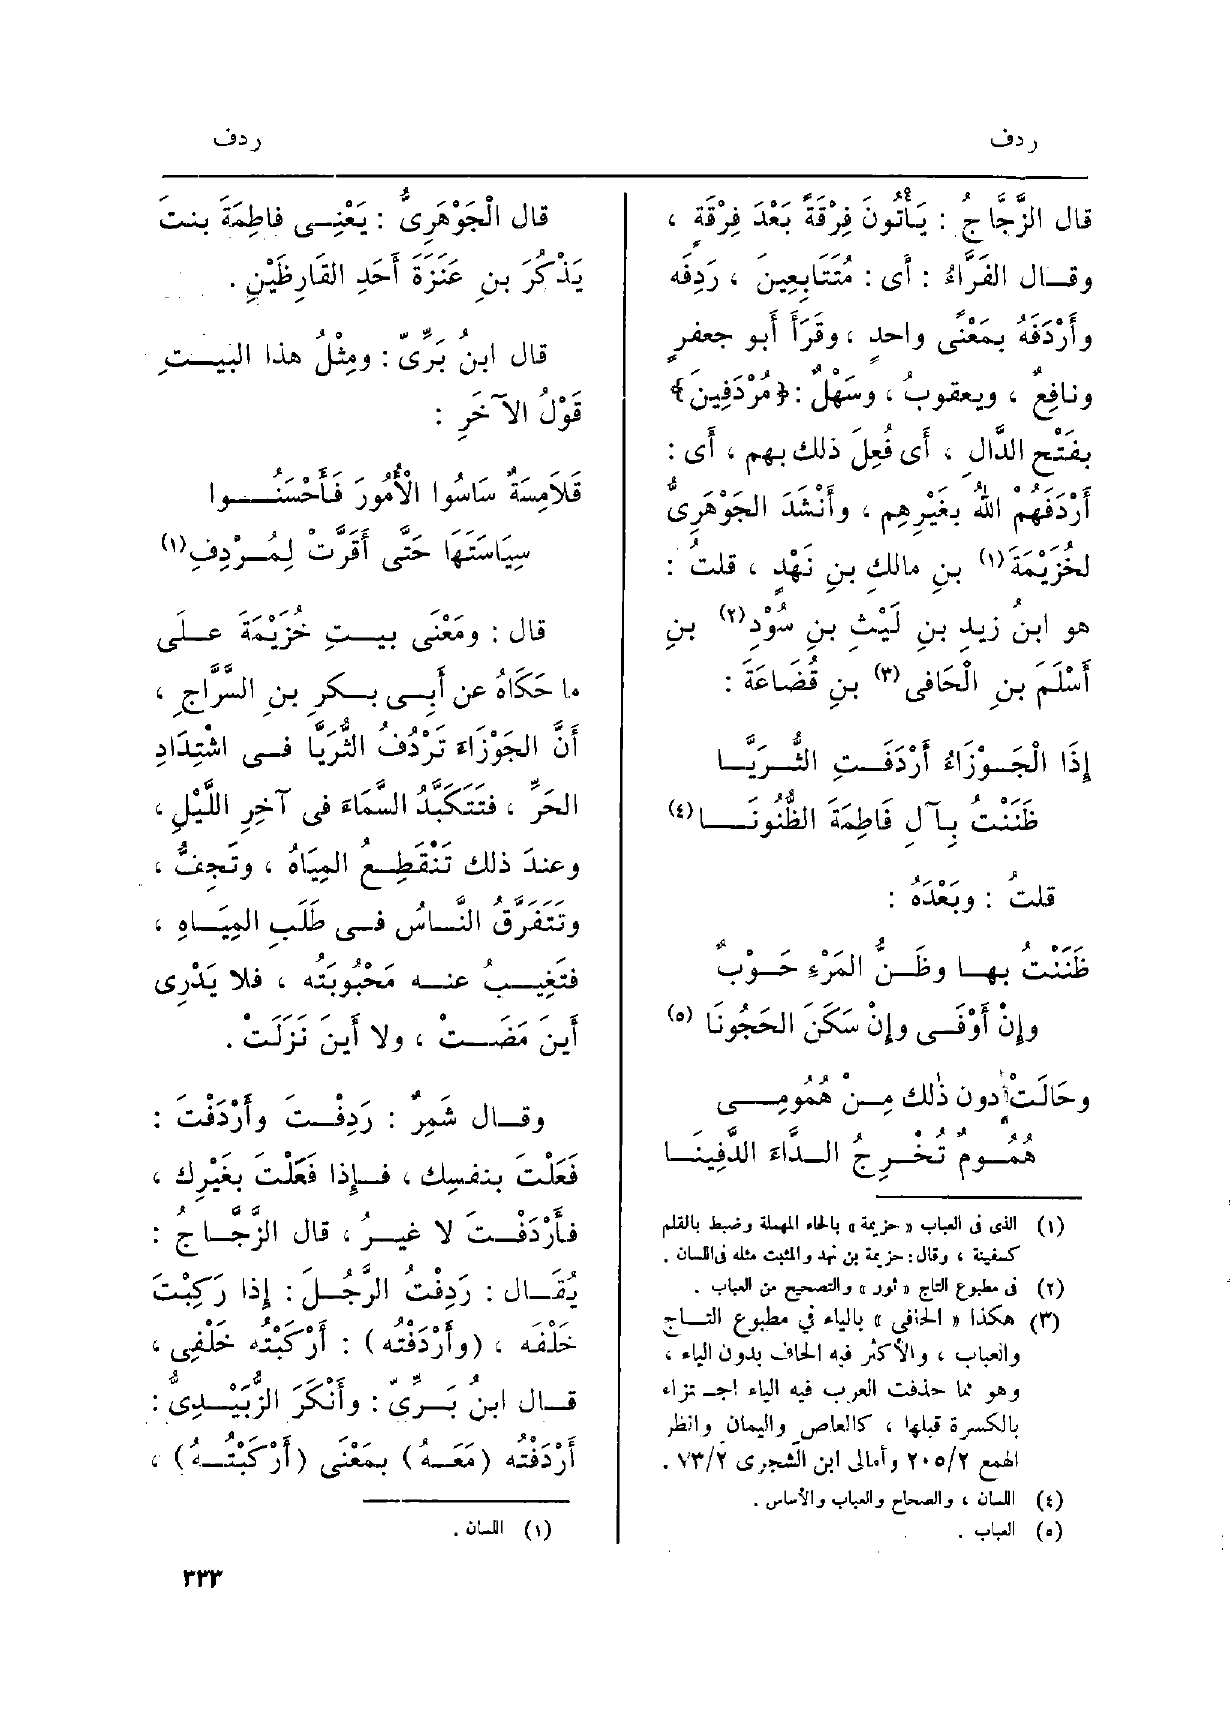 ردف
ردف
قال الزَّجَّاجُ : يَأْتُونَ فِرْقَةً بَعْدَ فِرْقَةٍ ،
وقال الفَرَّاءُ : أَى : مُتَتَابِعِينَ ، رَدِفَه
وأَرْدَفَهُ بمَعْنًى واحدٍ ، وقَرَأَ أَبو جعفرٍ
ونافِعٌ ، ويعقوبُ ، وسَهْلٌ : ﴿مُرْدَفِينَ﴾
بفَتْحِ الدَّالِ ، أَى فُعِلَ ذلك بهم ، أَى :
أَرْدَفَهُمْ اللهُ بغَيْرِهِم ، وأَنْشَدَ الجَوْهَرِىُّ
لخُزَيْمَةَ (١) بنِ مالكِ بنِ نَهْدٍ ، قلتُ :
هو ابنُ زيدِ بنِ لَيْثِ بنِ سُوْدِ (٢) بنِ
أَسْلَمَ بنِ الْحَافِى (٣) بنِ قُضَاعَةَ :
إِذَا الْجَوْزَاءُ أَرْدَفَتِ الثُّرَيَّا
ظَنَنْتُ بِآلِ فَاطِمَةَ الظُّنُونَا (٤)
قلتُ : وبَعْدَهُ :
ظَنَنْتُ بها وظَنُّ المَرْءِ حَوْبٌ
وإِنْ أَوْفَى وإِنْ سَكَنَ الحَجُونَا (٥)
وحَالَتْ دون ذٰلك مِنْ هُمُومِى
هُمُومٌ تُخْرِجُ الدَّاءَ الدَّفِينَا
(١) الذى فى العباب « حزيمة » بالحاء المهملة وضبط بالقلم
كسفينة ، وقال : حزيمة بن نهد والمثبت مثله فى اللسان .
(٢) فى مطبوع التاج « ثور » والتصحيح من العباب .
(٣) هكذا « الحافى » بالياء في مطبوع التاج
والعباب ، والأكثر فيه الحاف بدون الياء ،
وهو مما حذفت العرب فيه الياء اجتزاء
بالكسرة قبلها ، كالعاص واليمان وانظر
الهمع ٢٠٥/٢ وأمالى ابن الشجرى ٧٣/٢ .
(٤) اللسان ، والصحاح والعباب والأساس .
(٥) العباب .
قال الْجَوْهَرِىُّ : يَعْنِى فاطِمَةَ بنتَ
يَذْكُرَ بنِ عَنَزَةَ أَحَدِ القَارِظَيْنِ .
قال ابنُ بَرِّىّ : ومِثْلُ هذا البيتِ
قَوْلُ الآخَرِ :
قَلَامِسَةٌ سَاسُوا الْأُمُورَ فَأَحْسَنُوا
سِيَاسَتَهَا حَتَّى أَقَرَّتْ لِمُرْدِفِ (١)
قال : ومَعْنَى بيتِ خُزَيْمَةَ على
ما حَكَاهُ عن أَبِى بكرِ بنِ السَّرَّاجِ ،
أَنَّ الجَوْزَاءَ تَرْدُفُ الثُّرَيَّا فى اشْتِدَادِ
الحَرِّ ، فتَتَكَبَّدُ السَّمَاءَ فى آخِرِ اللَّيْلِ ،
وعندَ ذلك تَنْقَطِعُ المِيَاهُ ، وتَجِفُّ ،
وتَتَفَرَّقُ النَّاسُ فى طَلَبِ المِيَاهِ ،
فتَغِيبُ عنه مَحْبُوبَتُه ، فلا يَدْرِى
أَينَ مَضَتْ ، ولا أَينَ نَزَلَتْ .
وقال شَمِرٌ : رَدِفْتَ وأَرْدَفْتَ :
فَعَلْتَ بنفسِك ، فإِذا فَعَلْتَ بغَيْرِك ،
فأَرْدَفْتَ لا غيرُ ، قال الزَّجَّاجُ :
يُقَال : رَدِفْتُ الرَّجُلَ : إِذا رَكِبْتَ
خَلْفَه ، (وأَرْدَفْتُه) : أَرْكَبْتُه خَلْفِى ،
قال ابنُ بَرِّىّ : وأَنْكَرَ الزُّبَيْدِىُّ :
أَرْدَفْتُه (مَعَهُ) بمَعْنَى (أَرْكَبْتُهُ) ،
(١) اللسان .
٣٣٣